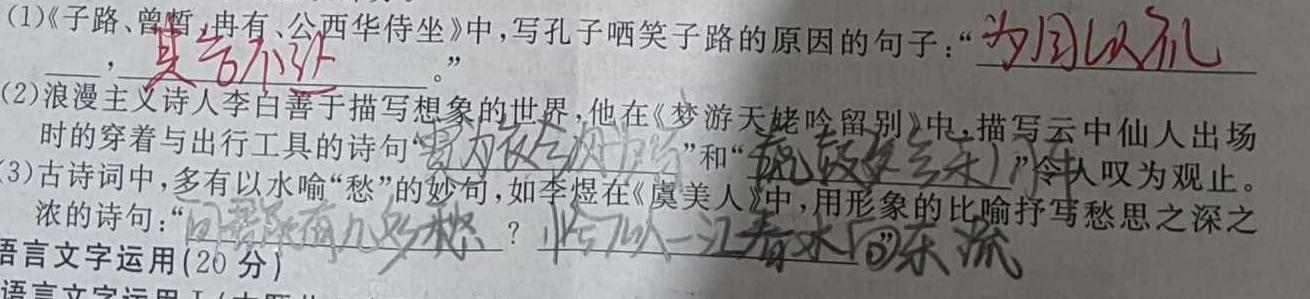 (1)《子路、曾皙、冉有、公西华侍坐》中,写孔子哂笑子路的原因的句子:“为国以礼
,其言不让。”
(2)浪漫主义诗人李白善于描写想象的世界,他在《梦游天姥吟留别》中,描写云中仙人出场
时的穿着与出行工具的诗句“霓为衣兮风为马”和“”令人叹为观止。
(3)古诗词中,多有以水喻“愁”的妙句,如李煜在《虞美人》中,用形象的比喻抒写愁思之深之
浓的诗句:“问君能有几多愁?恰似一江春水向东流”
语言文字运用(20分)
语言文字运用